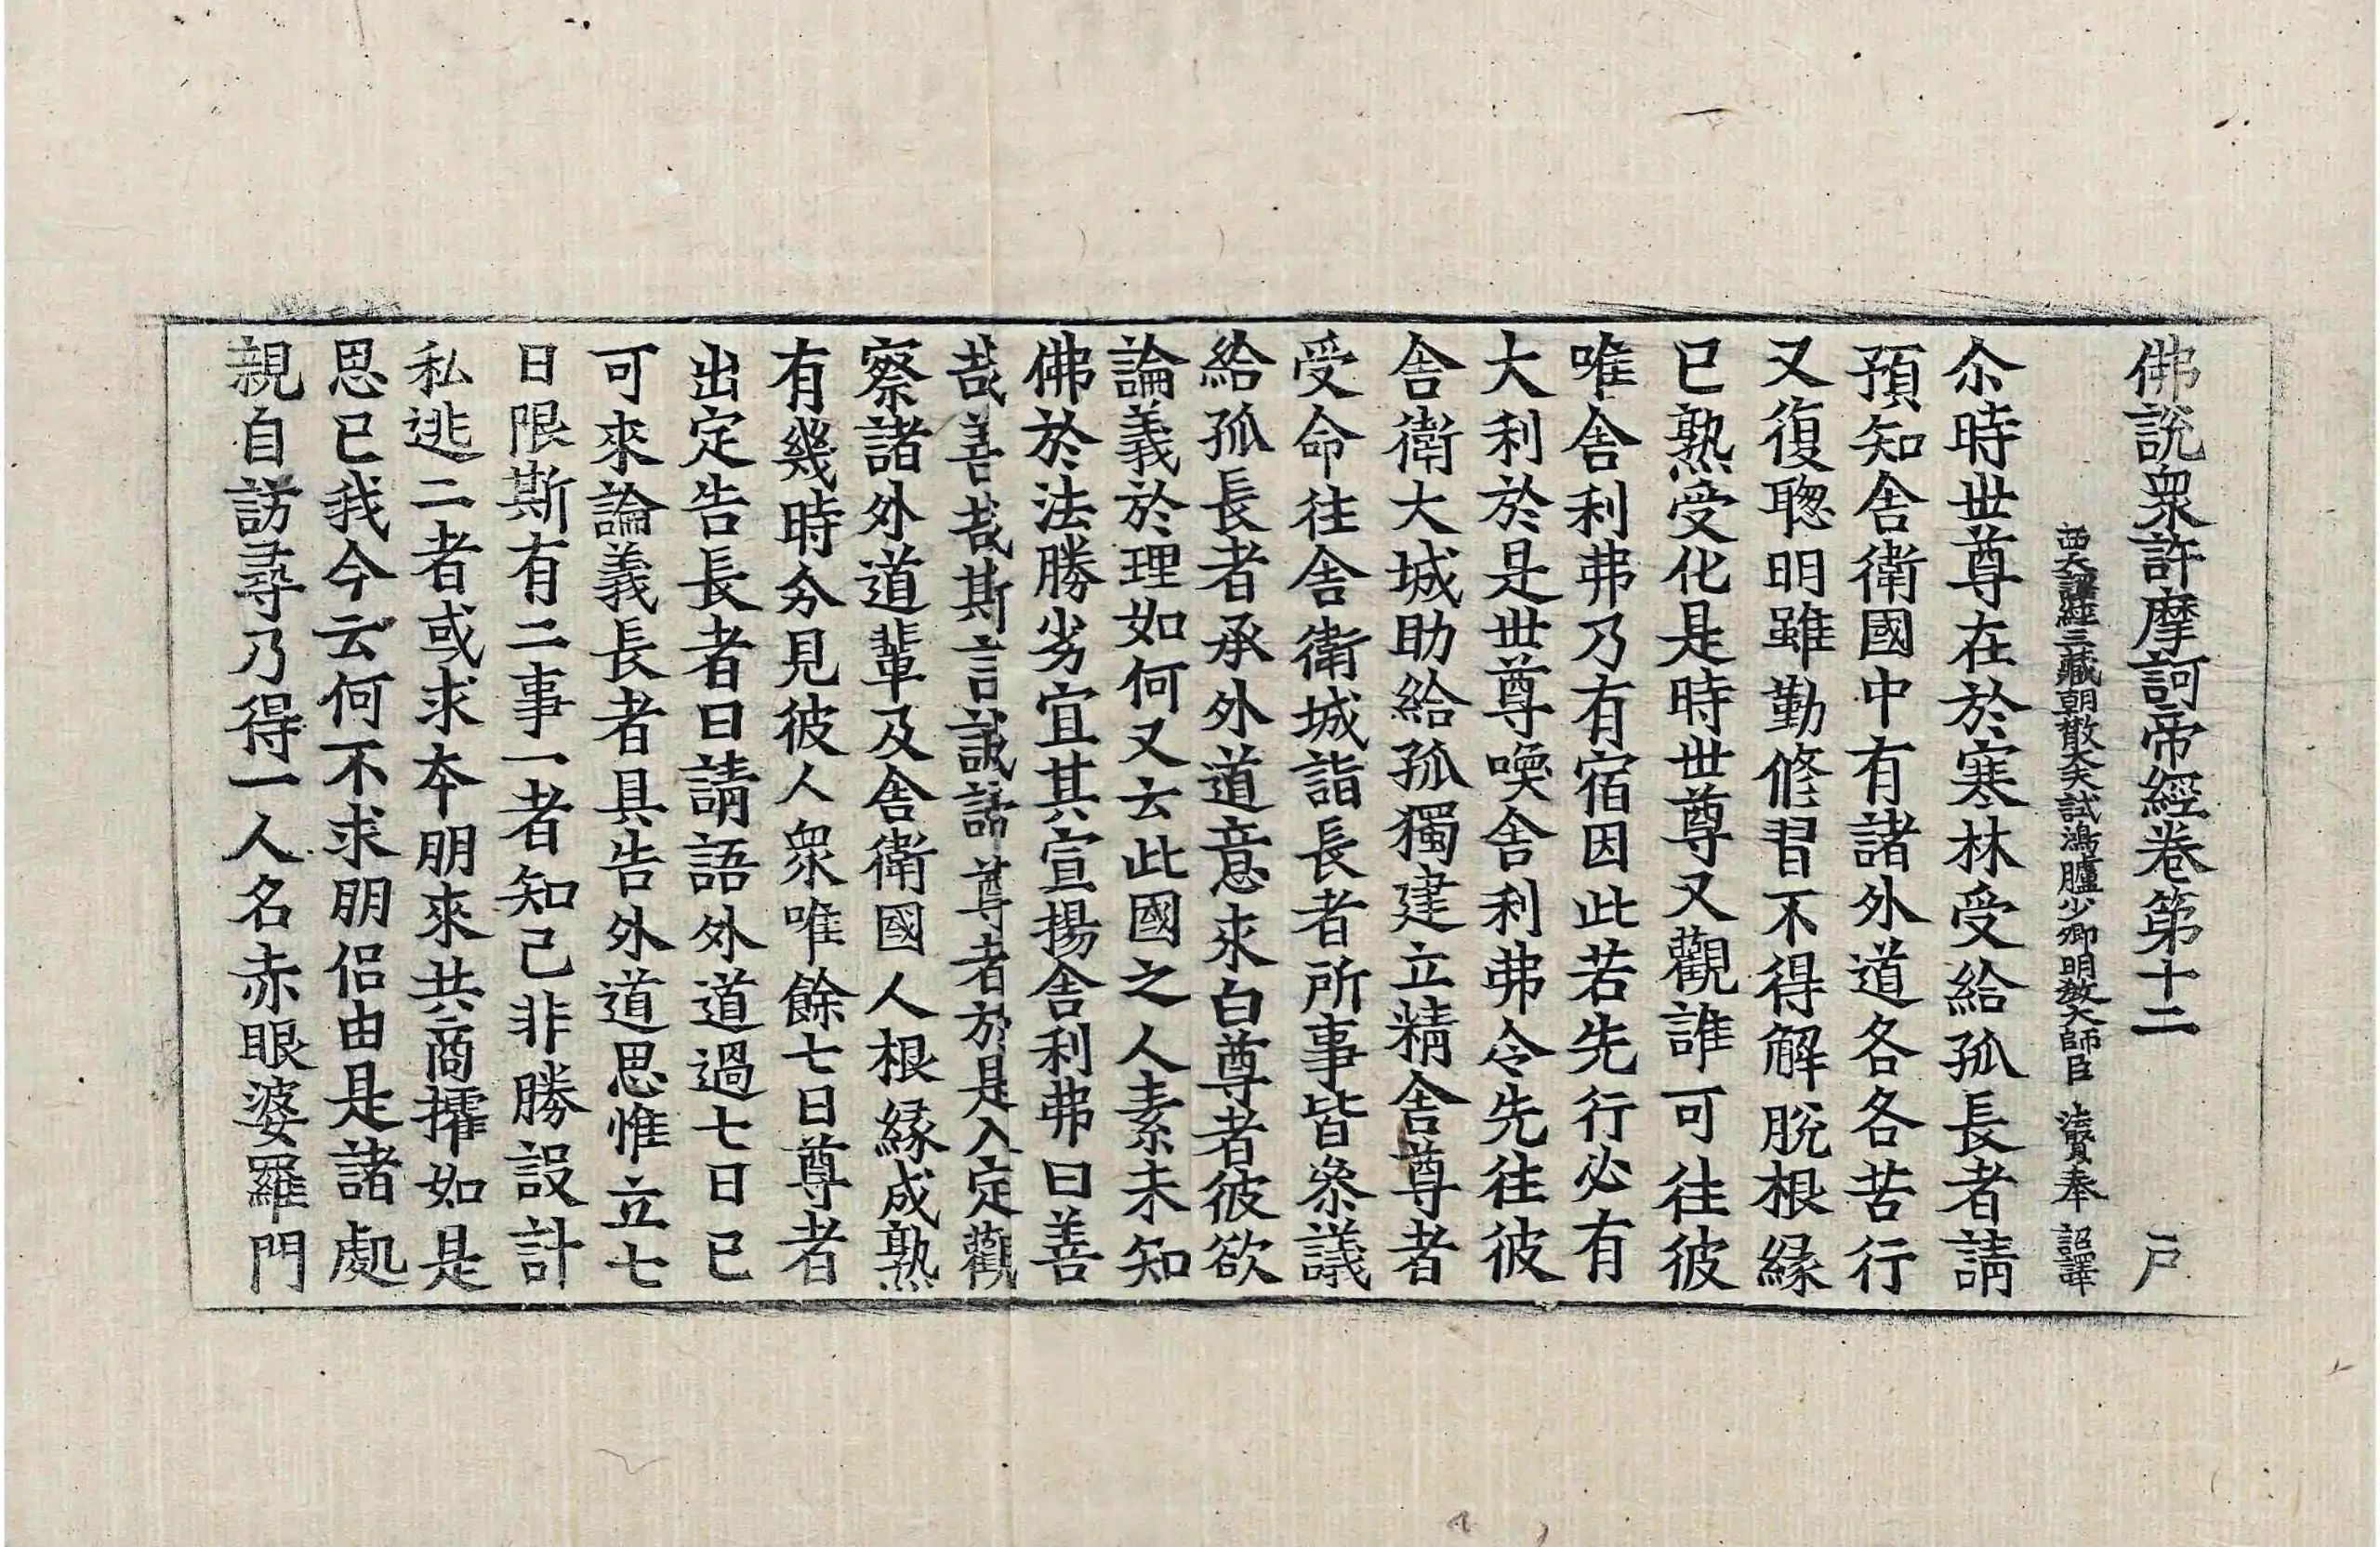 佛說衆許摩訶帝經卷第十二　戸
西天譯經三藏朝散大夫試鴻臚少卿明教大師臣　法賢奉　詔譯
尒時世尊在於寒林受給孤長者請
預知舍衛國中有諸外道各各苦行
又復聦明雖勤修習不得解脫根縁
已熟受化是時世尊又觀誰可往彼
唯舍利弗乃有宿因此若先行必有
大利於是世尊喚舍利弗令先往彼
舍衛大城助給孤獨建立精舍尊者
受命往舍衛城詣長者所事皆叅議
給孤長者承外道意來白尊者彼欲
論義於理如何又云此國之人素未知
佛於法勝劣宜其宣揚舍利弗曰善
哉善哉斯言誠諦尊者於是入定觀
察諸外道輩及舍衛國人根縁成熟
有幾時分見彼人衆唯餘七日尊者
出定告長者曰請語外道過七日已
可來論義長者具告外道思惟立七
日限斯有二事一者知己非勝設計
私逃二者或求本朋來共商搉如是
思已我今云何不求朋侣由是諸處
親自訪尋乃得一人名赤眼婆羅門